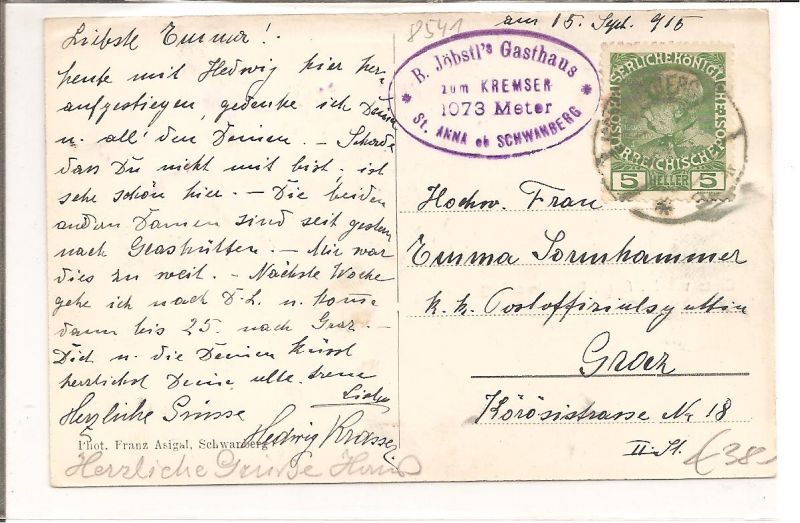 am 15. Sept. 915
8541
Liebste Emma!
heute mit Hedwig hier her-
aufgestiegen, gedenke ich Deiner
u. all' den Deinen. – Schade
dass Du nicht mit bist, ist
sehr schön hier. – Die beiden
andern Damen sind seit gestern
nach Glashütten. – Mir war
dies zu weit. – Nächste Woche
gehe ich nach D.L. u. komme
dann bis 25. nach Graz. –
Dich u. die Deinen küsst
herzlichst Deine alte treue
Herzliche Grüsse
Hedwig
Phot. Franz Asigal, Schwanberg
Herzliche Grüße
B. Jöbstl's Gasthaus
zum KREMSER
1073 Meter
St. ANNA ob SCHWANBERG
KAISERLICHE KÖNIGLICHE
ÖSTERREICHISCHE POST
5 HELLER 5
Hochw. Frau
Emma Sornhammer
k. k. Postoffizialsgattin
Graz
Körösistrasse Nr 18
II. St.